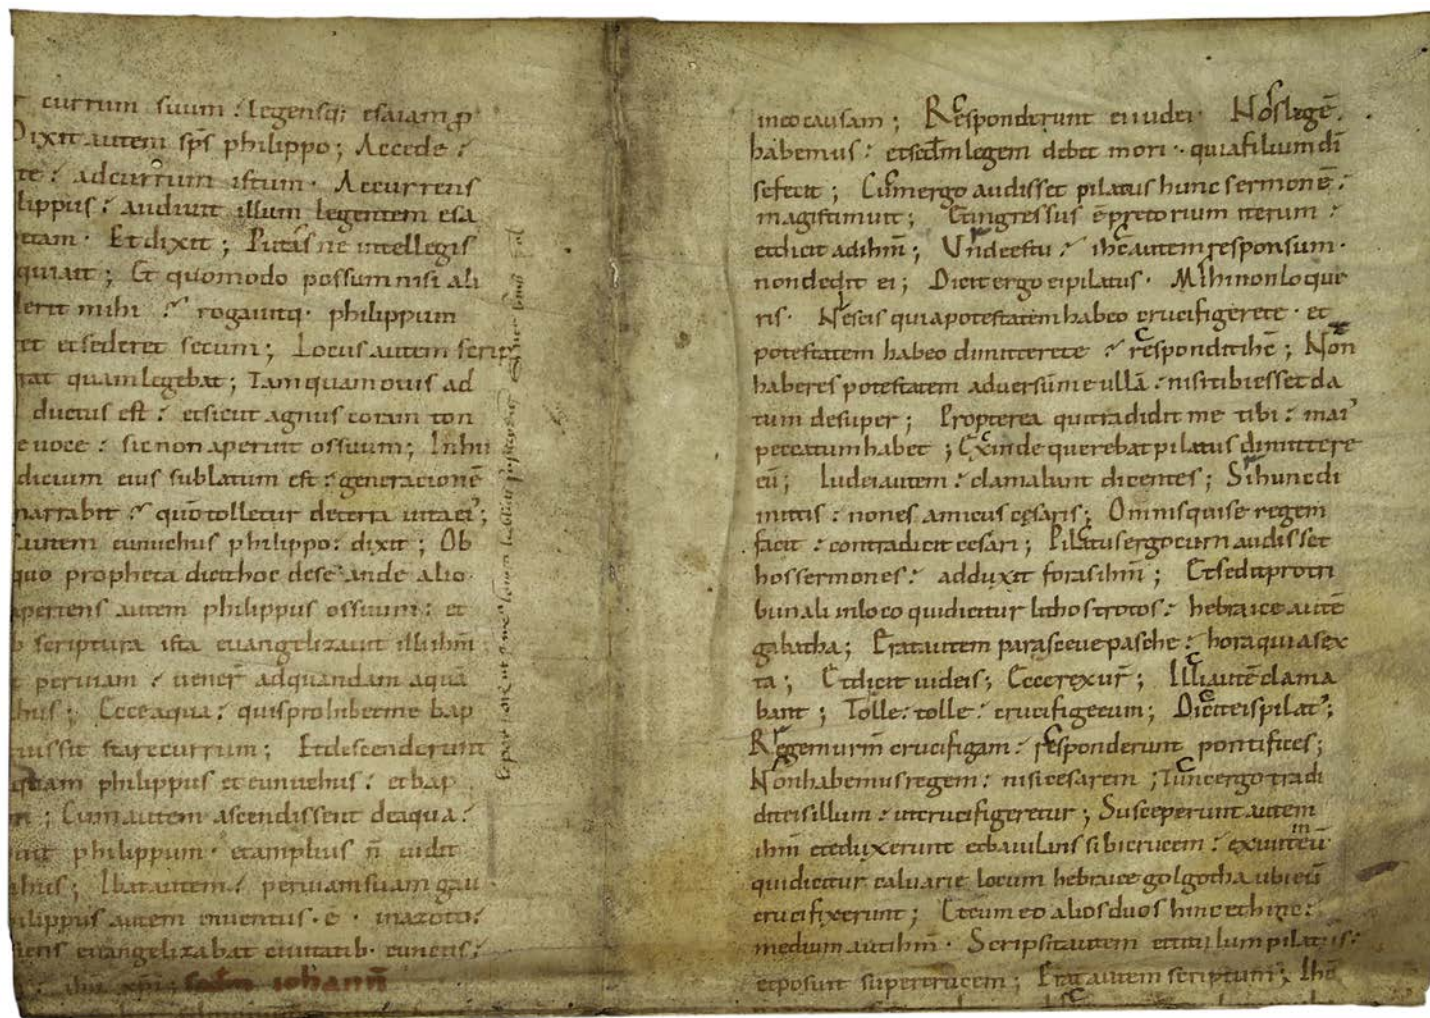 currum suum : legensq; esaiam ꝓ
Dixit autem sp̄s philippo ; Accede :
te : ad currum istum · Accurrens
lippus : audivit illum legentem esa
etam · Et dixit ; Putas ne intellegis
qui ait ; Et quomodo possum nisi ali
erit mihi : rogavitq· philippum
et et sederet secum ; Locus autem scrip
rat quam legebat ; Tamquam ovis ad
ductus est : et sicut agnus coram ton
e voce : sic non aperuit os suum ; In hu
dicium eius sublatum est : generacionē
narrabit : qūo tolletur de terra vita ei' ;
autem eunuchus philippo : dixit ; Ob
quo propheta dicit hoc de se an de alio ·
aperiens autem philippus os suum : et
b scriptura ista euangelizavit illi ihm̄
t per viam : vener̄ ad quandam aquā
hus ; Ecce aqua : quis prohibet me bap
iussit stare currum ; Et descenderunt
quam philippus et eunuchus : et bap
; Cum autem ascendissent de aqua :
philippum · et amplius n̄ vidit
hus ; Ibat autem : per viam suam gau
ilippus autem inventus · e · in azoto :
iens euangelizabat civitatib· cunctis :
ihm xp̄i ; sc̄dm iohann̄
in eo causam ; Responderunt ei iudei · Nos legē
habemus : et sec̄dm legem debet mori · quia filium dī
se fecit ; Cum ergo audisset pilatus hunc sermonē :
magis timuit ; Et ingressus ē pretorium iterum :
et dicit ad ihm̄ ; Unde es tu : ihc̄ autem responsum ·
non dedit ei ; Dicit ergo ei pilatus · Mihi non loque
ris · Nescis quia potestatem habeo crucifigere te · et
potestatem habeo dimittere te : respondit ihc̄ ; Non
haberes potestatem adversum me ullā : nisi tibi esset da
tum desuper ; Propterea qui tradidit me tibi : mai'
peccatum habet ; Exinde querebat pilatus dimittere
eū ; Iudei autem : clamabant dicentes ; Si hunc di
mittis : non es amicus cęsaris ; Omnis qui se regem
facit : contradicit cesari ; Pilatus ergo cum audisset
hos sermones : adduxit foras ihm̄ ; Et sedit pro tri
bunali in loco qui dicitur lithostrotos : hebraice autē
gabatha ; Erat autem parasceve pasche : hora quia sex
ta ; Et dicit iudeis ; Ecce rex ur̄ ; Illi autē clama
bant ; Tolle : tolle : crucifige eum ; Dicit eis pilat' ;
Regem urm̄ crucifigam : responderunt pontifices ;
Non habemus regem : nisi cesarem ; Tunc ergo tradi
dit eis illum : ut crucifigeretur ; Susceperunt autem
ihm̄ et eduxerunt et baiulans sibi crucem : exivit in eū
qui dicitur calvarie locum hebraice golgotha ubi eū
crucifixerunt ; Et cum eo alios duos hinc et hinc :
medium aut ihm̄ · Scripsit autem et titulum pilatus :
et posuit super crucem ; Erat autem scriptum ; Ihē